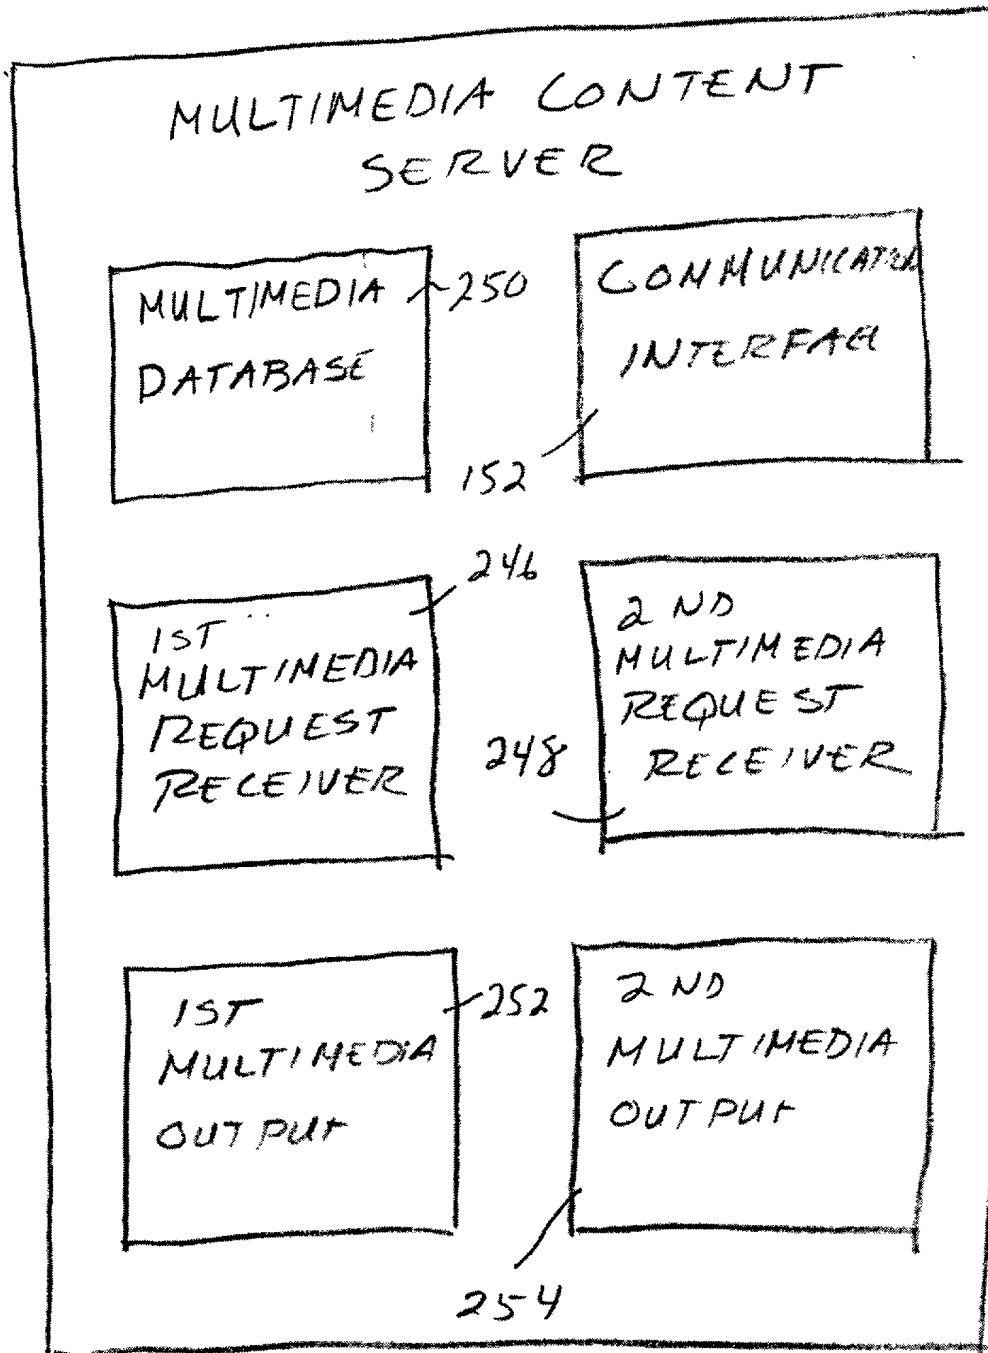 MULTIMEDIA CONTENT
SERVER
MULTIMEDIA
DATABASE
250
COMMUNICATION
INTERFACE
152
1ST
MULTIMEDIA
REQUEST
RECEIVER
246
2ND
MULTIMEDIA
REQUEST
RECEIVER
248
1ST
MULTIMEDIA
OUTPUT
252
2ND
MULTIMEDIA
OUTPUT
254